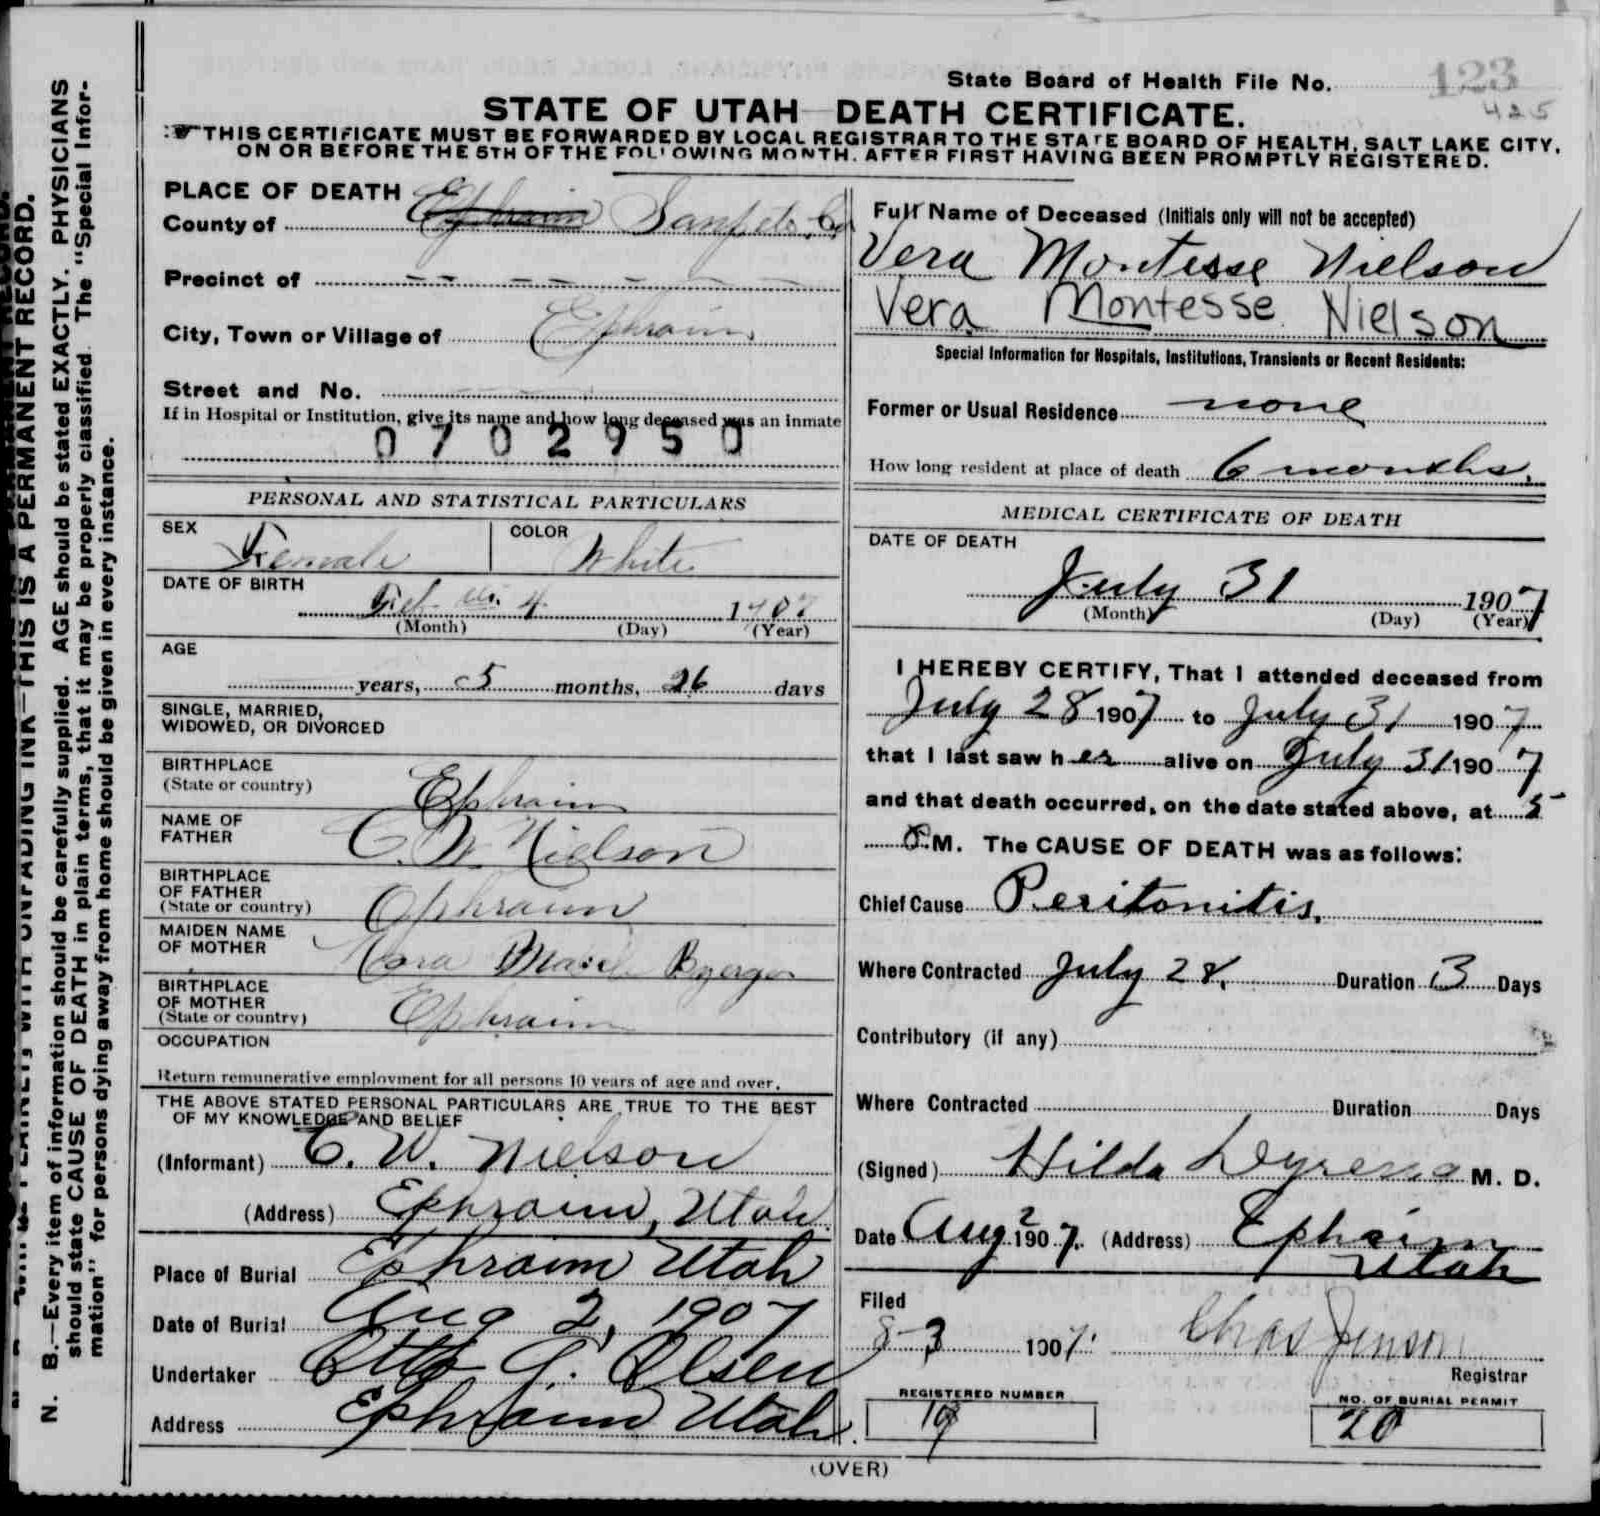 State Board of Health File No. 123
425
STATE OF UTAH DEATH CERTIFICATE.
THIS CERTIFICATE MUST BE FORWARDED BY LOCAL REGISTRAR TO THE STATE BOARD OF HEALTH, SALT LAKE CITY,
ON OR BEFORE THE 5TH OF THE FOLLOWING MONTH, AFTER FIRST HAVING BEEN PROMPTLY REGISTERED.
PLACE OF DEATH
County of Ephraim Sanpete Co
Precinct of
City, Town or Village of Ephraim
Street and No.
If in Hospital or Institution, give its name and how long deceased was an inmate
0702950
PERSONAL AND STATISTICAL PARTICULARS
SEX Female COLOR White
DATE OF BIRTH
Feb 4 1907
(Month) (Day) (Year)
AGE
years, 5 months, 26 days
SINGLE, MARRIED,
WIDOWED, OR DIVORCED
BIRTHPLACE
(State or country) Ephraim
NAME OF
FATHER C. W. Nielson
BIRTHPLACE
OF FATHER
(State or country) Ephraim
MAIDEN NAME
OF MOTHER
BIRTHPLACE
OF MOTHER
(State or country) Ephraim
OCCUPATION
Return remunerative employment for all persons 10 years of age and over.
THE ABOVE STATED PERSONAL PARTICULARS ARE TRUE TO THE BEST
OF MY KNOWLEDGE AND BELIEF
(Informant) C. W. Nielson
(Address) Ephraim, Utah.
Place of Burial Ephraim Utah
Date of Burial Aug 2, 1907
Undertaker Otto A. Olsen
Address Ephraim Utah.
Full Name of Deceased (Initials only will not be accepted)
Vera Montesse Nielson
Vera Montesse Nielson
Special Information for Hospitals, Institutions, Transients or Recent Residents:
Former or Usual Residence none
How long resident at place of death 6 months.
MEDICAL CERTIFICATE OF DEATH
DATE OF DEATH
July 31 1907
(Month) (Day) (Year)
I HEREBY CERTIFY, That I attended deceased from
July 28 1907 to July 31 1907
that I last saw her alive on July 31 1907
and that death occurred, on the date stated above, at 5
P.M. The CAUSE OF DEATH was as follows:
Chief Cause Peritonitis.
Where Contracted July 28. Duration 3 Days
Contributory (if any)
Where Contracted Duration Days
(Signed) Hilda M. D.
Date Aug 2 1907. (Address) Ephraim
Utah
Filed
8-3 1907. Chas Jenson
Registrar
REGISTERED NUMBER
19
NO. OF BURIAL PERMIT
20
(OVER)
THIS IS A PERMANENT RECORD.
N. B.—Every item of information should be carefully supplied. AGE should be stated EXACTLY. PHYSICIANS
should state CAUSE OF DEATH in plain terms, that it may be properly classified. The "Special Infor-
mation" for persons dying away from home should be given in every instance.